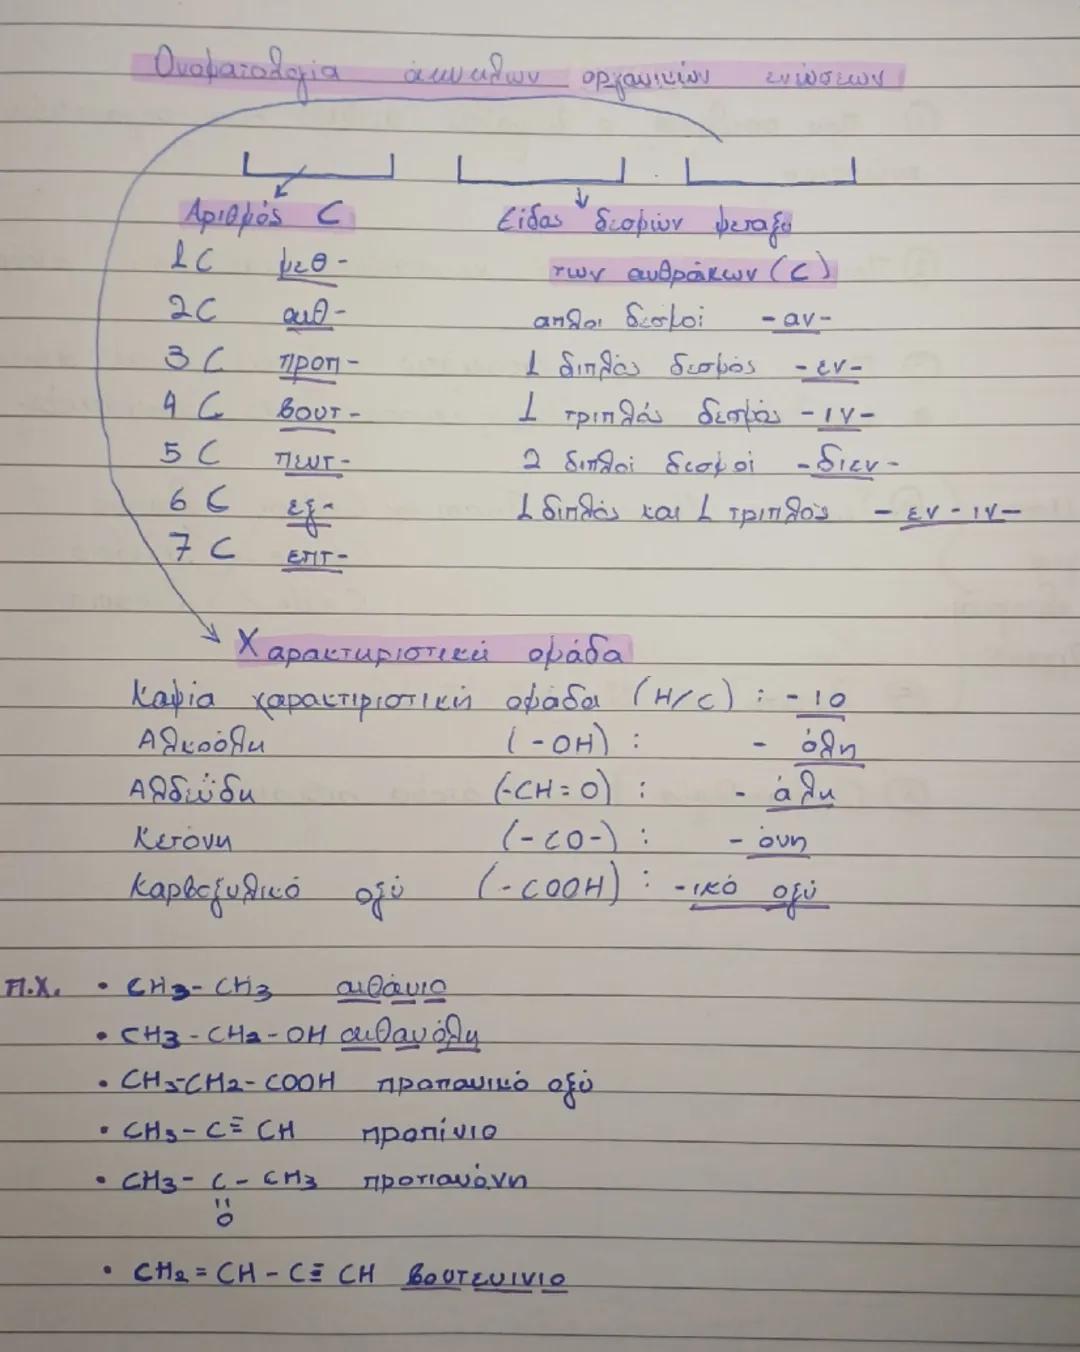 Ονοματολογία άκυκλων οργανικών ενώσεων
Αριθμός C
1C μεθ-
2C αιθ-
3C προπ-
4C βουτ-
5C πεντ-
6C εξ-
7C επτ-
Είδος δεσμών μεταξύ
των ανθράκων (C)
απλοι δεσμοί -αν-
1 διπλός δεσμός -εν-
1 τριπλός δεσμός -ιν-
2 διπλοί δεσμοί -διεν-
1 διπλός και 1 τριπλός - εν - ιν-
Χαρακτηριστική ομάδα
Καμία χαρακτιριστική ομάδα (H/C) : - ιο
Αλκοόλη (-OH) : - όλη
Αλδεΰδη (-CH=O) : - άλη
Κετόνη (-CO-) : - όνη
Καρβοξυλικό οξύ (-COOH) : -ικό οξύ
π.χ. • CH3-CH3 αιθάνιο
• CH3-CH2-OH αιθανόλη
• CH3-CH2-COOH προπανικό οξύ
• CH3-C≡CH προπίνιο
• CH3-C-CH3 προπανόνη
=
O
• CH2=CH-C≡CH βουτενινιο